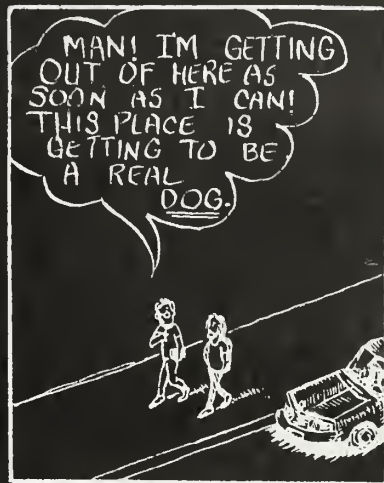 MAN! I'M GETTING
OUT OF HERE AS
SOON AS I CAN!
THIS PLACE IS
GETTING TO BE
A REAL
DOG.